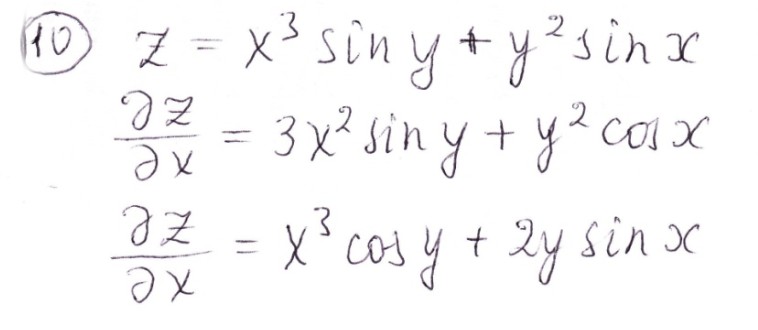 ⑩ z = x³ sin y + y² sin x
∂z/∂x = 3x² sin y + y² cos x
∂z/∂x = x³ cos y + 2y sin x